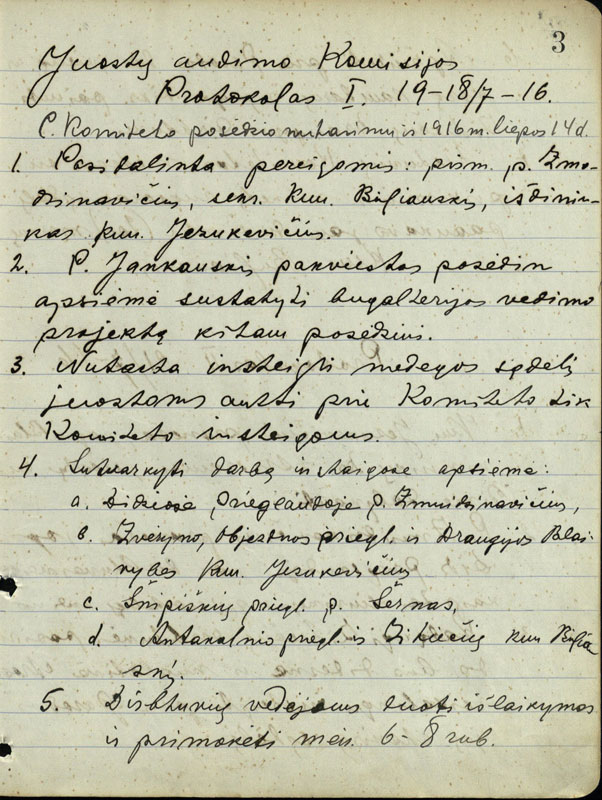 3
Juostų audimo Komisijos
Protokolas I. 19-18/7-16.
C. Komiteto posėdžio nutarimų iš 1916 m. liepos 14 d.
1. Pasidalinta pareigomis: pirm. p. Žmui-
dzinavičius, sekr. kun. Bieliauskis, iždinin-
kas kun. Jezukevičius.
2. P. Jankauskis pakviestas posėdin
apsiėmė sustatyti bugalterijos vedimo
projektą kitam posėdžiui.
3. Nutarta insteigti medegos sądėlį
juostoms austi prie Komiteto tik
Komiteto insteigoms.
4. Sutvarkyti darbą instaigose apsiėmė:
a. Didžiose Prieglaudoje p. Žmuidzinavičius,
b. Zveryno, Objezdnos priegl. ir Draugijos Blai-
vybės Kun. Jezukevičius
c. Šnipiškių priegl. p. Šernas,
d. Antakalnio priegl. ir kun
5. Dirbtuvių vedėjoms duoti išlaikymas
ir primokėti mėn. 6-8 rub.